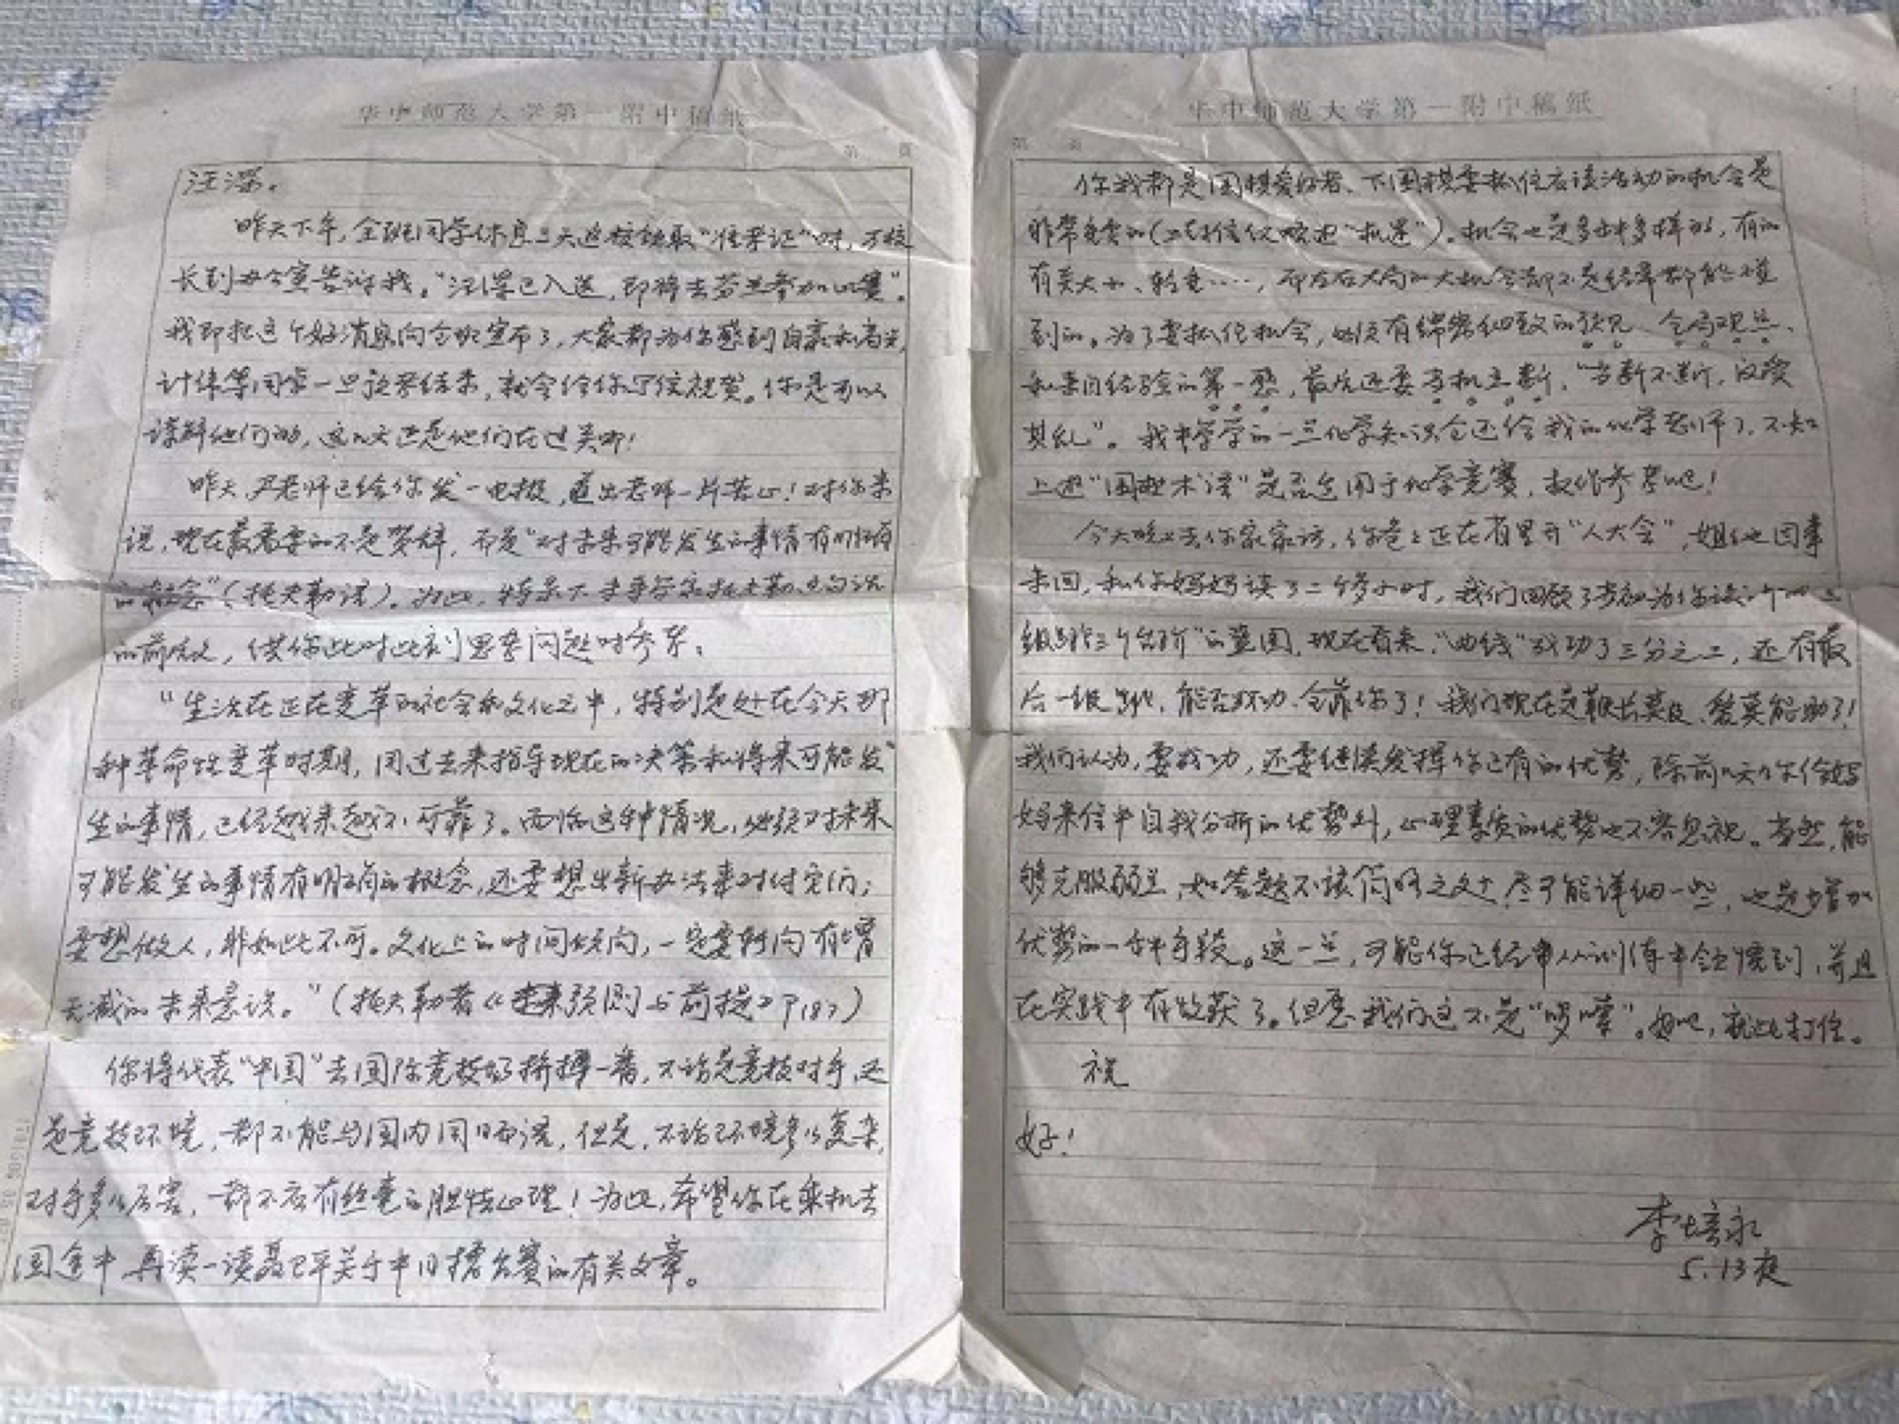 华中师范大学第一附中稿纸
第 页
汪深。
昨天下午,全班同学休息三天返校领取"准考证"时,万校
长到办公室告诉我。"汪深已入选,即将去芬兰参加比赛"。
我即把这个好消息向全班宣布了,大家都为你感到自豪和高兴,
计伟等同学一旦预考结束,就会给你写信祝贺。你是可以
谅解他们的,这几天正是他们在过关哪!
昨天尹老师已给你发一电报,道出老师一片苦心!对你来
说,现在最需要的不是贺辞,而是"对未来可能发生的事情有明确
的概念"(托夫勒语)。为此,摘录下未来学家托夫勒
的前后文,供你此时此刻思考问题时参考。
"生活在正在变革的社会和文化之中,特别是处在今天那
种革命性变革时期,用过去来指导现在的决策和将来可能发
生的事情,已经越来越不可靠了。面临这种情况,必须对未来
可能发生的事情有明确的概念,还要想出新办法来对付它们;
要想做人,非如此不可。文化上的时间倾向,一定要转向有增
无减的未来意识。"(托夫勒著《未来预测与前提》P187)
你将代表"中国"去国际竞技场拼搏一番,不论是竞技对手,还
是竞技环境,都不能与国内同日而语,但是,不论环境多么复杂,
对手多么厉害,都不应有丝毫的胆怯心理!为此,希望你在乘机去
国途中,再读一读聂卫平关于中日擂台赛的有关文章。
华中师范大学第一附中稿纸
第 页
你我都是围棋爱好者、下围棋要抓住应该活动的机会是
非常重要的( "机遇")。机会也是多种多样的,有的
有关大小、轻重……,而左右大局的大机会却不是经常都能碰
到的。为了要抓住机会,必须有绵密细致的预见、全局观点、
和来自经验的第一感,最后还要当机立断,"当断不断,反受
其乱"。我中学学的一点化学知识全还给我的化学老师了,不知
上述"围棋术语"是否适用于化学竞赛,权作参考吧!
今天晚上去你家家访,你爸爸正在省里开"人大会",姐姐也因事
未回,和你妈妈谈了二个多小时,我们回顾了当初为你设计的
级跨三个台阶"的蓝图,现在看来,"曲线"成功了三分之二,还有最
后一级 ,能否成功,全靠你了!我们现在是鞭长莫及,爱莫能助了!
我们认为,要成功,还要继续发挥你已有的优势,除前几天你给妈
妈来信中自我分析的优势外,心理素质的优势也不容忽视。当然,能
够克服弱点,如答题不该简略之处,尽可能详细一些,也是增加
优势的一种手段。这一点,可能你已经从训练中领悟到,并且
在实践中有收获了。但愿我们这不是"啰嗦"。好吧,就此打住。
祝
好!
李培永
5.13夜